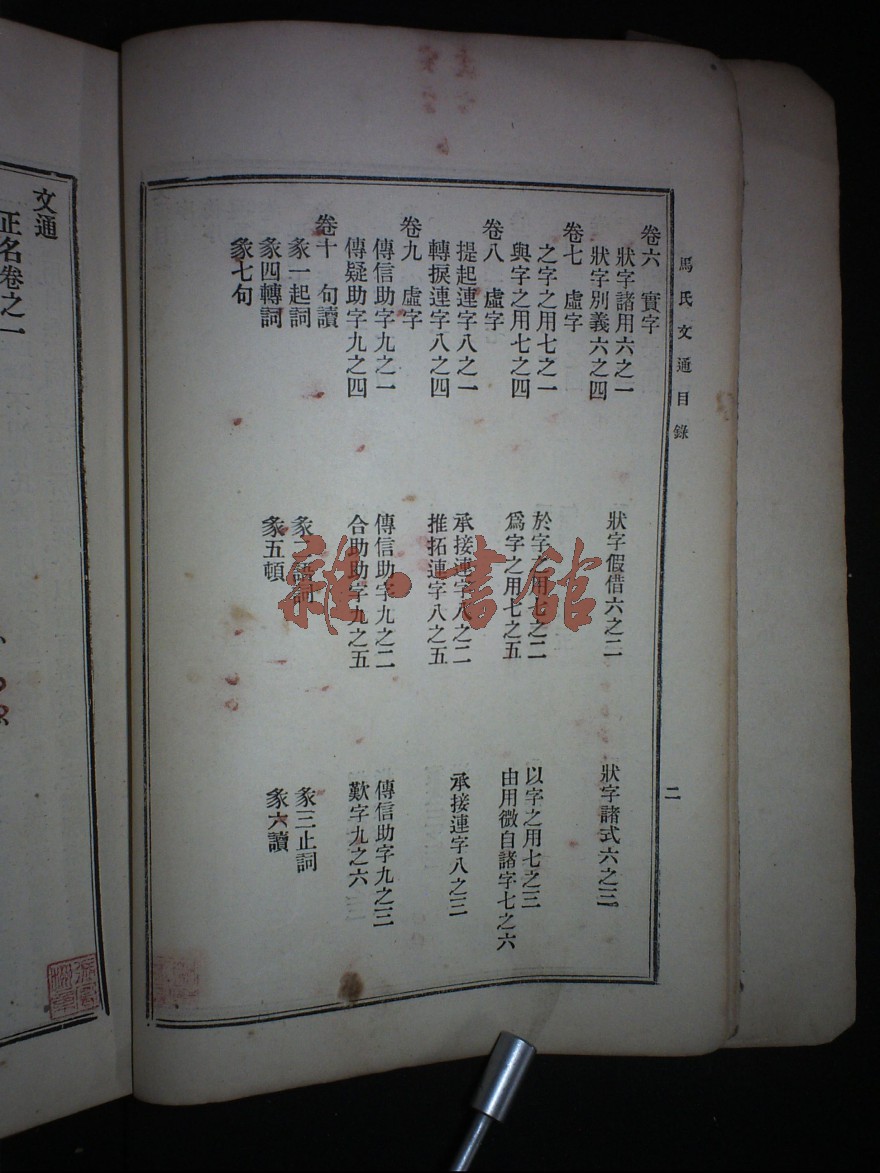 馬氏文通目錄
二
卷六　實字
狀字諸用六之一　狀字假借六之二　狀字諸式六之三
狀字別義六之四
卷七　虛字
之字之用七之一　於字之用七之二　以字之用七之三
與字之用七之四　爲字之用七之五　由用微自諸字七之六
卷八　虛字
提起連字八之一　承接連字八之二　承接連字八之三
轉捩連字八之四　推拓連字八之五
卷九　虛字
傳信助字九之一　傳信助字九之二　傳信助字九之三
傳疑助字九之四　合助助字九之五　歎字九之六
卷十　句讀
彖一起詞　彖二語詞　彖三止詞
彖四轉詞　彖五頓　彖六讀
彖七句
文通
正名卷之一
雜·書館